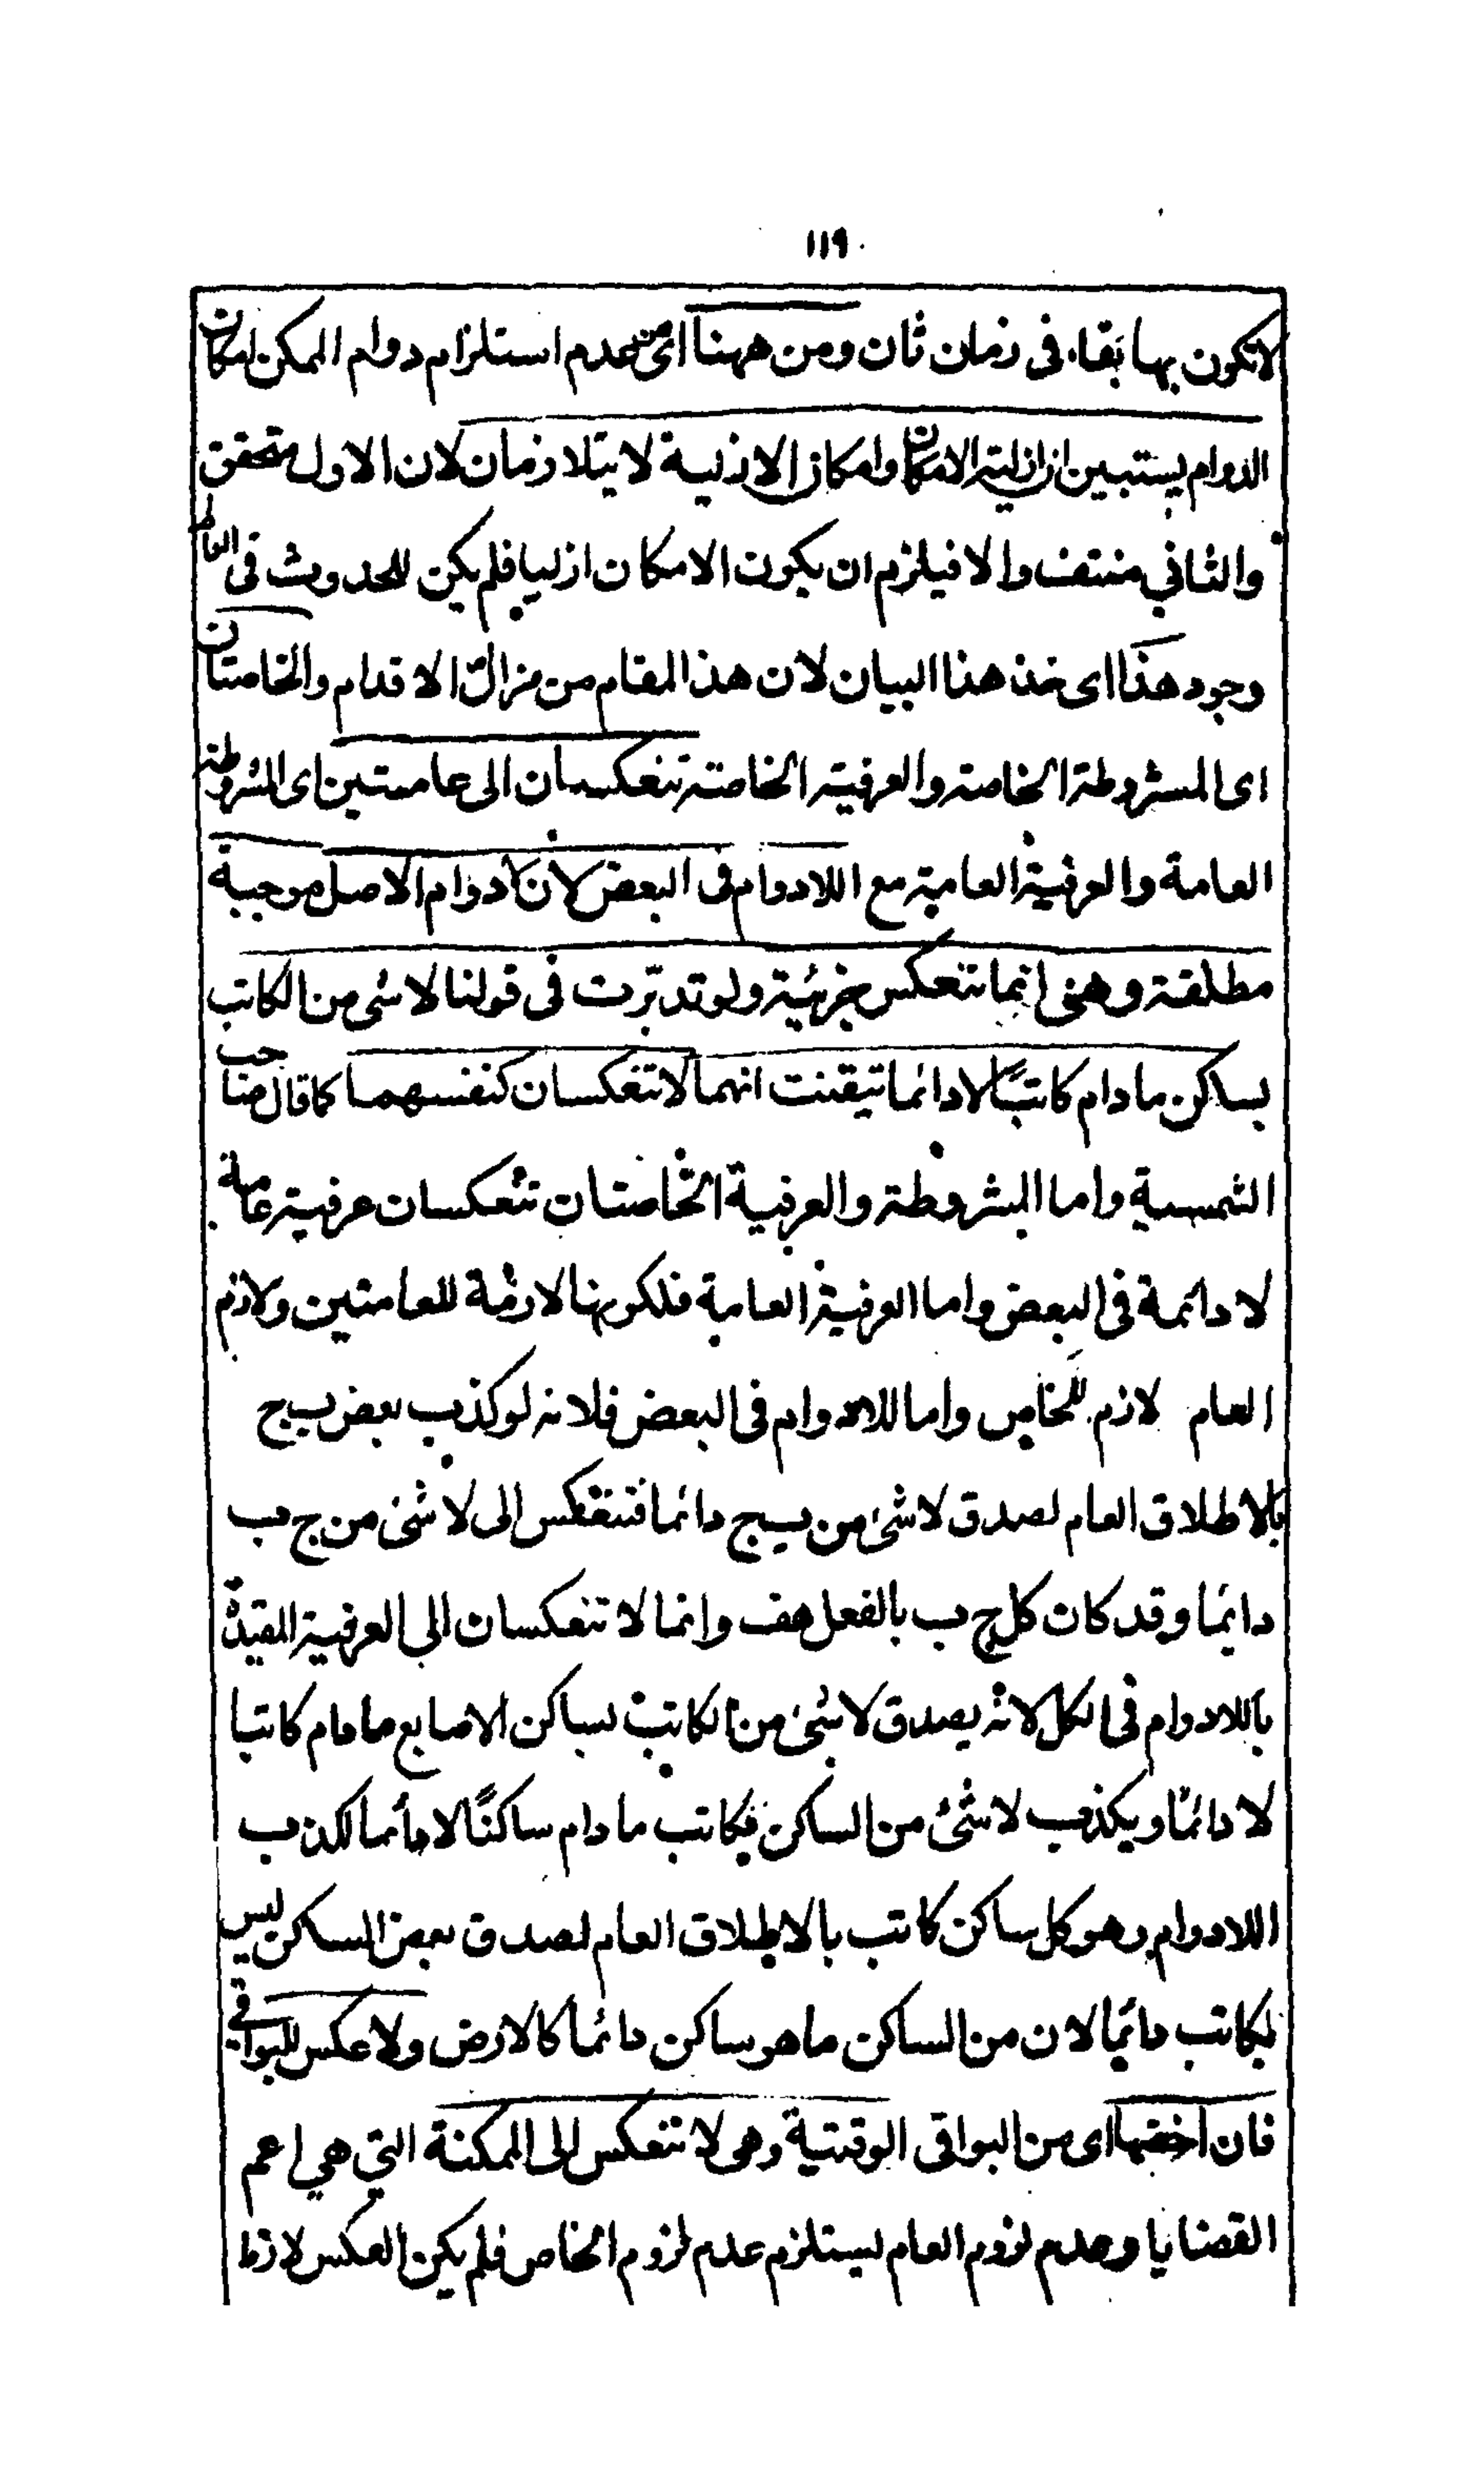 ١١٩
لا تكون بها بقاء فى زمان ثان ومن ههنا اى من عدم استلزام دوام الممكن امكان
الدوام يستبين ان ازلية الامكان وامكان الازلية لا يتلازمان لان الاول متحقق
والثاني منتف والا فيلزم ان يكون الامكان ازليا فلم يكن للحدوث فى العالم
وجود هذا اى خذ هذا البيان لان هذا المقام من مزالّ الاقدام والخاصتان
اى المشروطة الخاصة والعرفية الخاصة تنعكسان الى عامتين اى المشروطة
العامة والعرفية العامة مع اللادوام فى البعض لان لا دوام الاصل موجبة
مطلقة وهى انما تنعكس جزئية ولو تدبّرت فى قولنا لا شئ من الكاتب
بساكن ما دام كاتبًا لا دائما تيقنت انهما لا تنعكسان كنفسهما كما قال صاحب
الشمسية واما المشروطة والعرفية الخاصتان تنعكسان عرفية عامة
لا دائمة فى البعض واما العرفية العامة فلكونها لازمة للعامتين ولازم
العام لازم للخاص واما اللادوام فى البعض فلانه لو كذب بعض ب ج
بالاطلاق العام لصدق لا شئ من ب ج دائما فتنعكس الى لا شئ من ج ب
دائما وقد كان كل ج ب بالفعل هف وانما لا تنعكسان الى العرفية المقيدة
باللادوام فى الكل لانه يصدق لا شئ من الكاتب بساكن الاصابع ما دام كاتبا
لا دائما ويكذب لا شئ من الساكن بكاتب ما دام ساكنًا لا دائما لكذب
اللادوام وهو كل ساكن كاتب بالاطلاق العام لصدق بعض الساكن ليس
بكاتب دائما لان من الساكن ما هو ساكن دائما كالارض ولا عكس للبواقي
فان اخصها اى من البواقى الوقتية وهى لا تنعكس الى الممكنة التي هي اعم
القضايا وعدم لزوم العام ليستلزم عدم لزوم الخاص فلم يكن العكس لازما